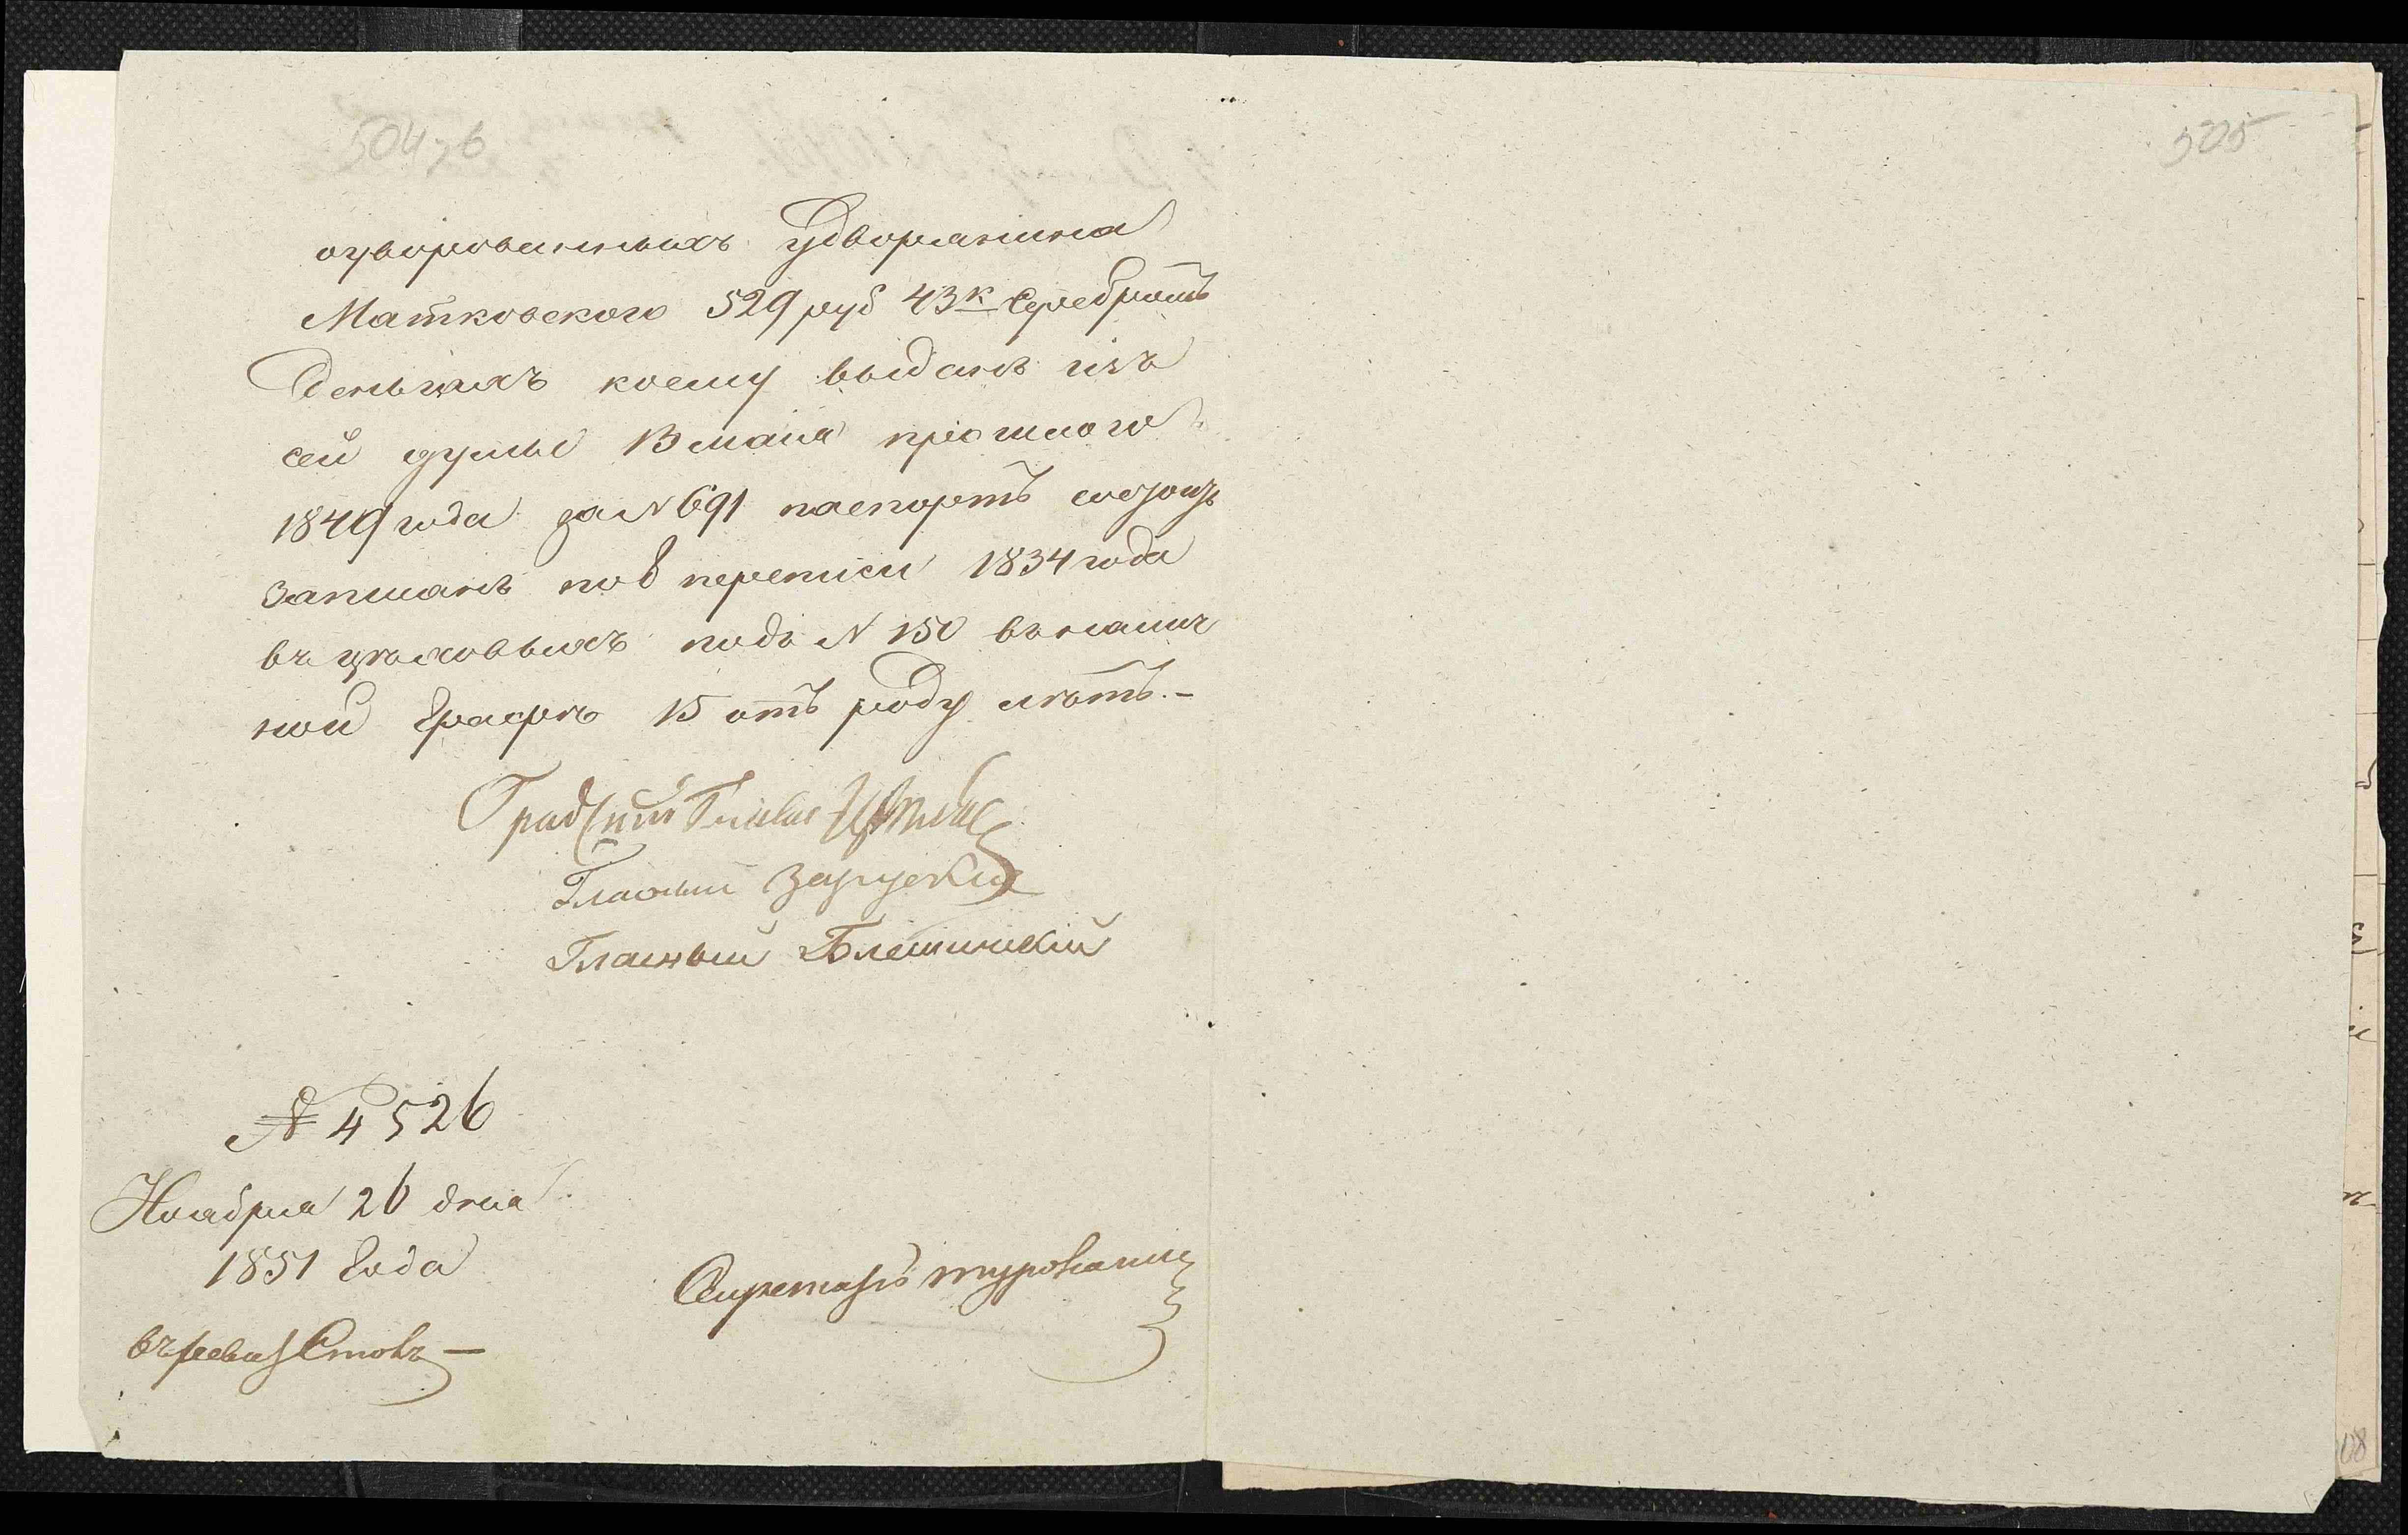 504 об
505
озворованныхъ удворянина
Матковского 529 руб 43 к Серебромъ
деньгахъ коему выданъ изъ
сей думы 13 мая прошлого
1849 года за N 691 паспортъ
записанъ по 8 переписи 1834 года
въ цеховыхъ подъ N 150 въ
ной Графѣ 15 отъ роду лѣтъ.-
Градскій Глава
Гласный Зарускій
Гласный
№ 4526
Ноября 26 дня
1851 Года
Секретарь
108